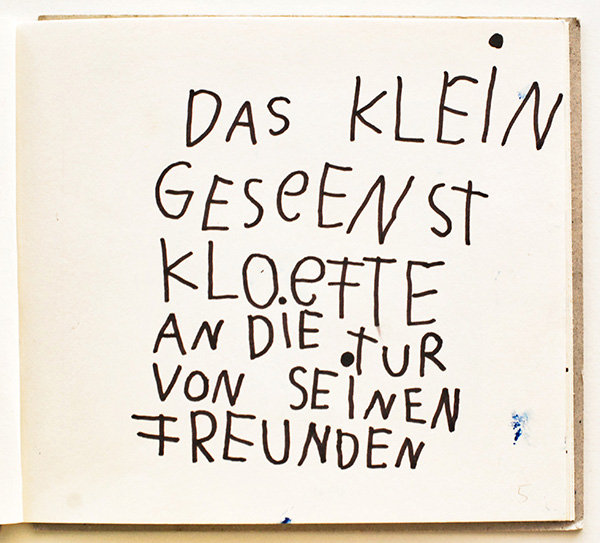 DAS KLEIN
GESPENST
KLOPFTE
AN DIE TUR
VON SEINEN
FREUNDEN
5